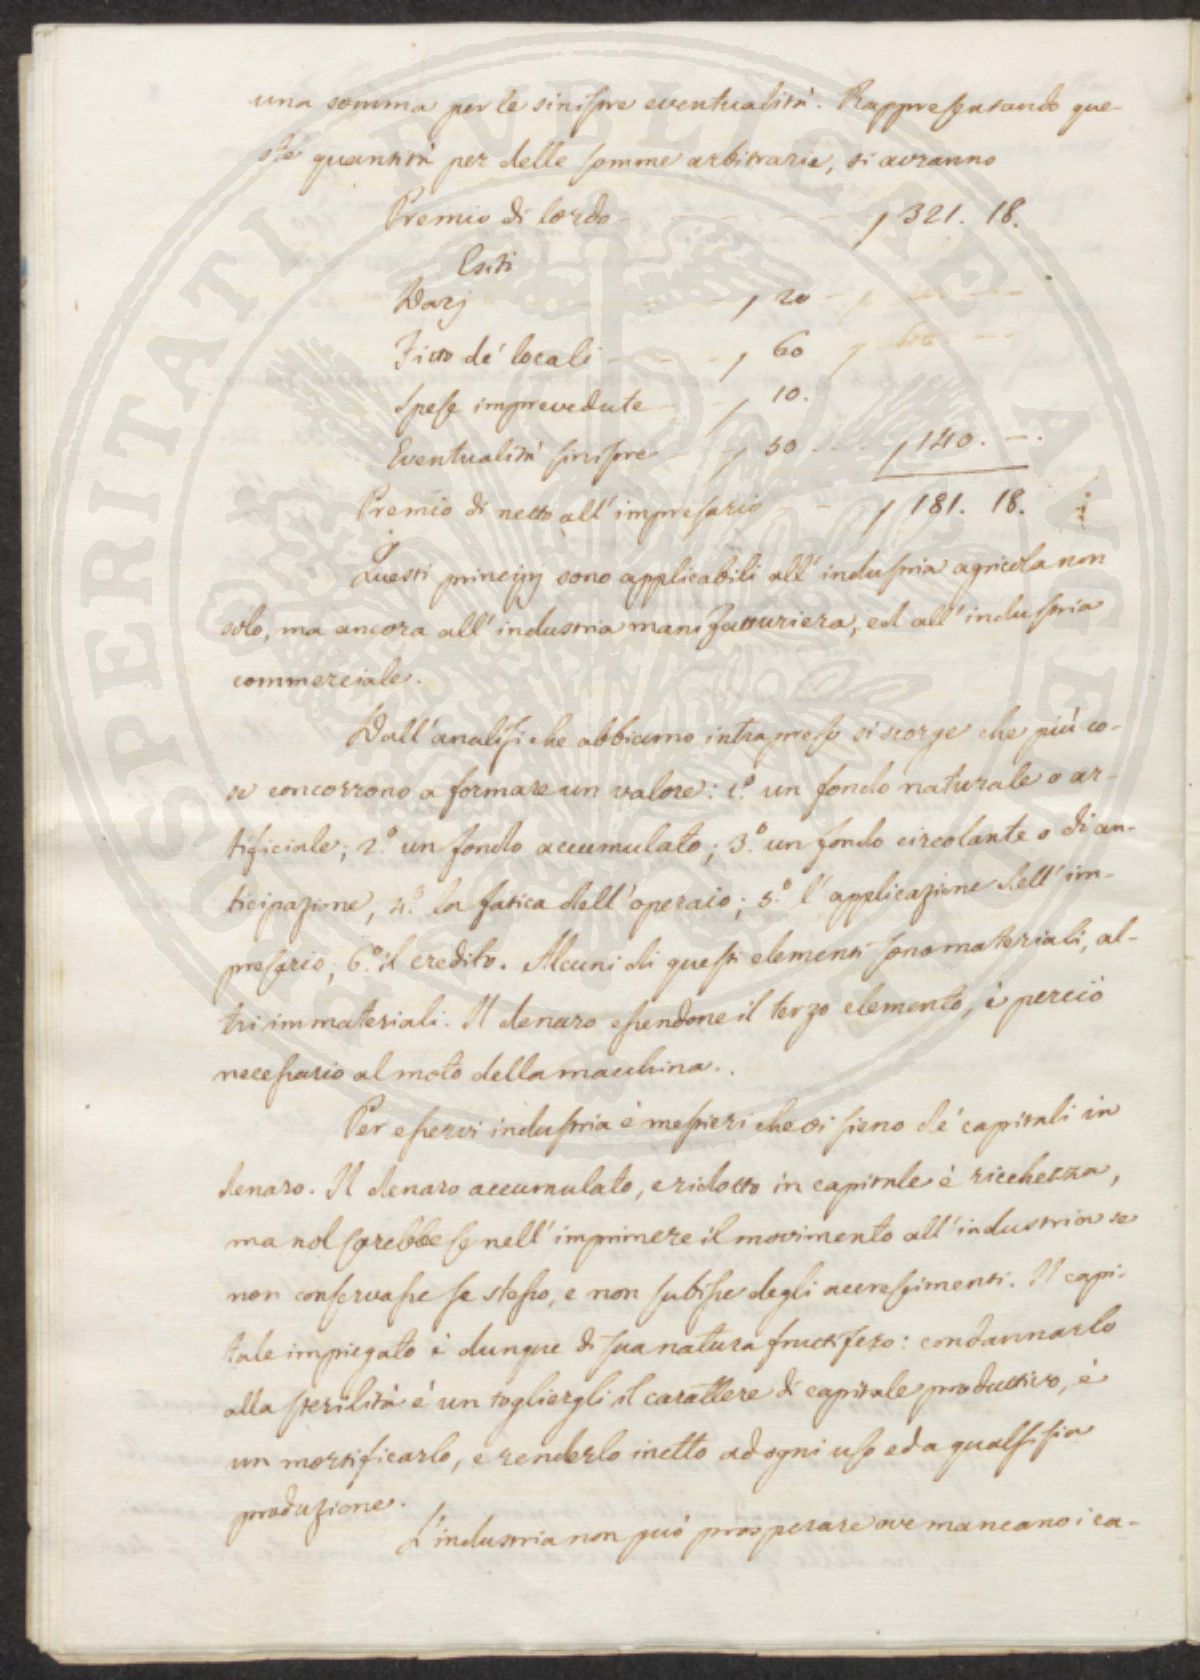 una somma per le sinistre eventualità. Rappresentando que-
ste quantità per delle somme arbitrarie, si avranno
Premio di lordo - - - - - - , 321. 18.
Esiti
Dazj - - - , 20 -
Fitto de' locali - - - , 60
Spese imprevedute - - , 10.
Eventualità sinistre - , 50 - - - , 140. - .
Premio di netto all'impresario - - , 181. 18.
Questi principj sono applicabili all'industria agricola non
solo, ma ancora all'industria manifatturiera, ed all'industria
commerciale.
Dall'analisi che abbiamo intrapreso si scorge che più co-
se concorrono a formare un valore: 1.º un fondo naturale o ar-
tificiale; 2.º un fondo accumulato; 3.º un fondo circolante o di an-
ticipazione; 4.º la fatica dell'operaio; 5.º l'applicazione dell'im-
presario; 6.º il credito. Alcuni di questi elementi sono materiali, al-
tri immateriali. Il denaro essendone il terzo elemento, è perciò
necessario al moto della macchina.
Per esservi industria è mestieri che vi sieno de' capitali in
denaro. Il denaro accumulato, e ridotto in capitale è ricchezza,
ma nol sarebbe se nell'imprimere il movimento all'industria se
non conservasse se stesso, e non subisse degli accrescimenti. Il capi-
tale impiegato è dunque di sua natura fruttifero: condannarlo
alla sterilità è un togliergli il carattere di capitale produttivo, è
un mortificarlo, e renderlo inetto ad ogni uso ed a qualsisia
produzione.
L'industria non può prosperare ove mancano i ca-
PROSPERITATI PVBLICAE AVGENDAE